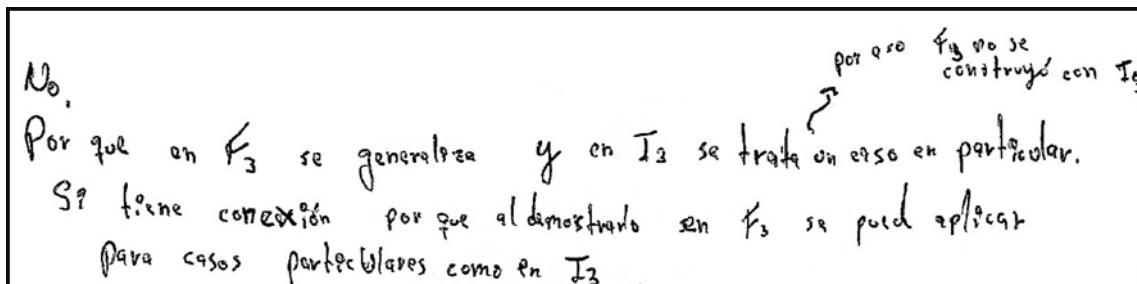 No.
por eso F3 no se
construyó con I3
Por que en F3 se generaliza y en I3 se trata un caso en particular.
Si tiene conexión por que al demostrarlo en F3 se pued aplicar
para casos particulares como en I3